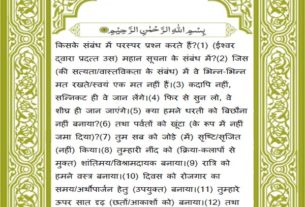 بِسْمِ اللهِ الرَّحْمٰنِ الرَّحِيْمِ
किसके संबंध में परस्पर प्रश्न करते हैं?(1) (ईश्वर
द्वारा प्रदत्त उस) महान सूचना के संबंध में?(2) जिस
(की सत्यता/वास्तविकता के संबंध) में वे भिन्न-भिन्न
मत रखते/स्वयं एक मत नहीं हैं।(3) कदापि नहीं,
सन्निकट ही वे जान लेंगे।(4) फिर से सुन लो, वे
शीघ्र ही जान जाएंगे।(5) क्या हमने धरती को बिछौना
नहीं बनाया?(6) तथा पर्वतों को खूंटा (के रूप में नहीं
जमा दिया)?(7) तुम सब को जोड़े (में) सृष्टि/सृजित
(नहीं) किया।(8) तुम्हारी नींद को (क्रिया-कलापों से
मुक्त) शांतिमय/विश्रामदायक बनाया।(9) रात्रि को
हमने वस्त्र बनाया।(10) दिवस को रोजगार का
समय/अर्थोपार्जन हेतु (उपयुक्त) बनाया।(11) तुम्हारे
ऊपर सात दृढ़ (छतों/आकाशों को) बनाया।(12) तथा